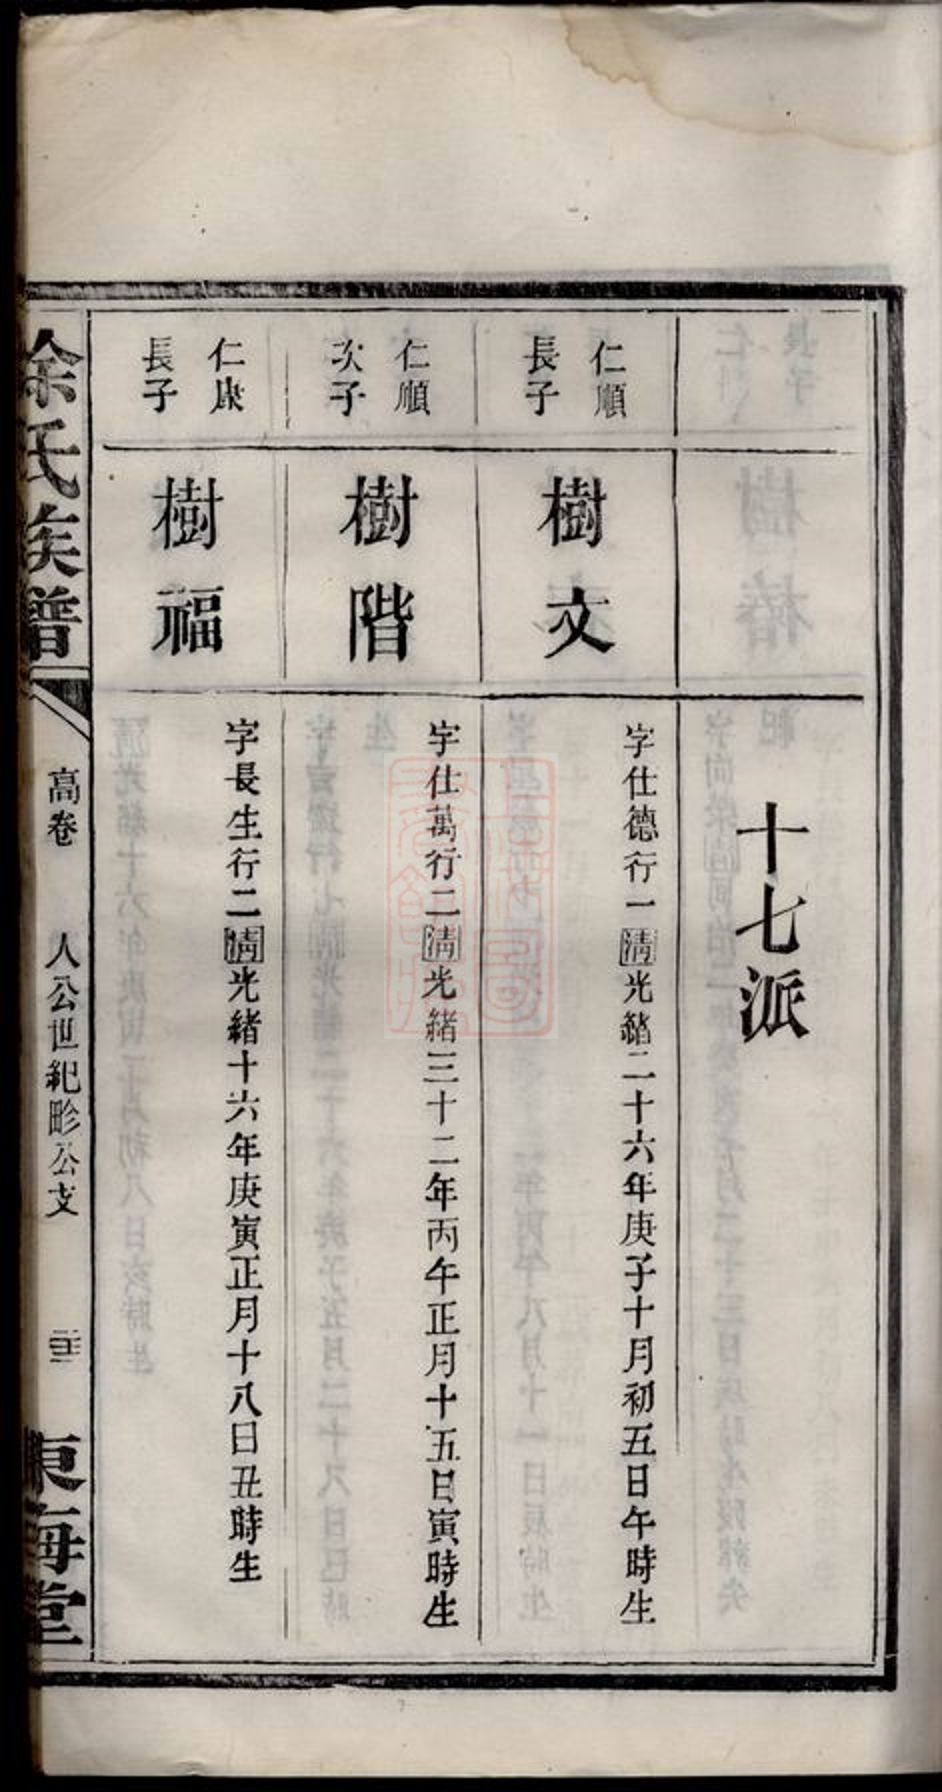 十七派
仁順
長子
樹文
字仕德行一清光緒二十六年庚子十月初五日午時生
仁順
次子
樹階
字仕萬行二清光緒三十二年丙午正月十五日寅時生
仁康
長子
樹福
字長生行二清光緒十六年庚寅正月十八日丑時生
徐氏族譜
高卷
人公世紀畛公支
東海堂